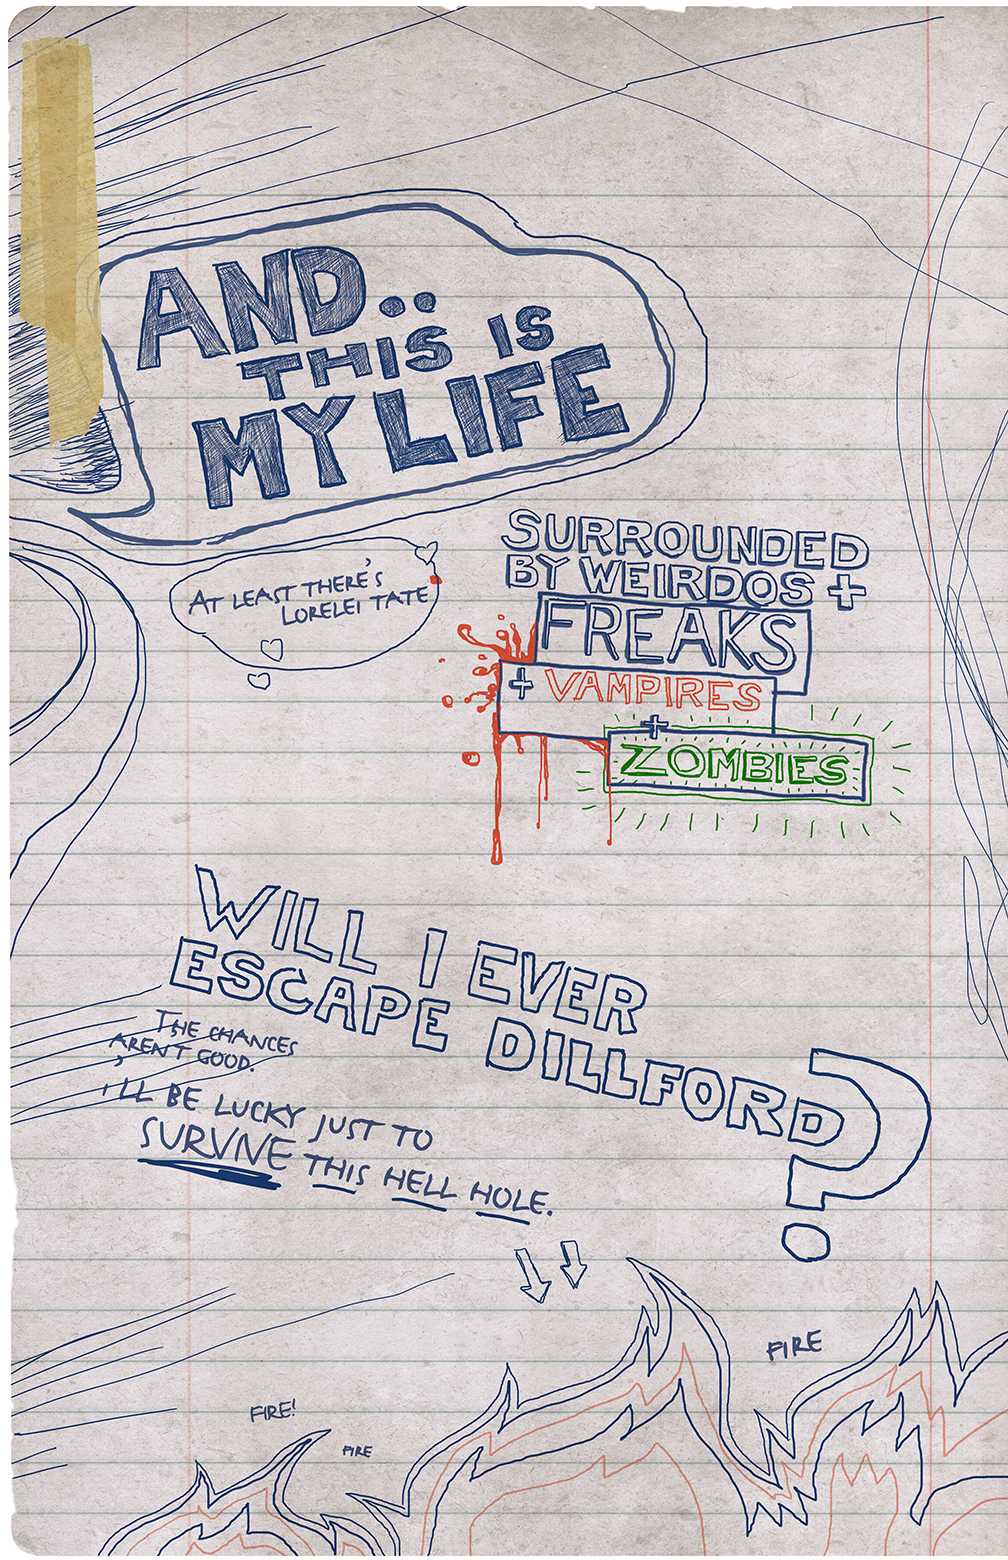 AND..
THIS IS
MY LIFE
AT LEAST THERE'S
LORELEI TATE
SURROUNDED
BY WEIRDOS +
FREAKS
+ VAMPIRES
+
ZOMBIES
WILL I EVER
ESCAPE DILLFORD?
THE CHANCES
AREN'T GOOD.
I'LL BE LUCKY JUST TO
SURVIVE THIS HELL HOLE.
FIRE
FIRE!
FIRE